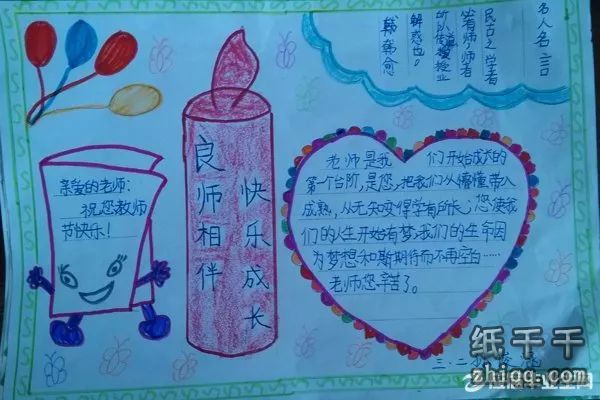 名人名言
民古之学者
必有师,师者
所以传道授业
解惑也。
韩韩愈
亲爱的老师:
祝您教师
节快乐!
良师相伴
快乐成长
老师是我 们开始成长的
第一个台阶,是您,把我们从懵懂带入
成熟,从无知变得学有所长;您使我
们的人生开始有梦,我们的生命因
为梦想和斯期待而不再空白……
老师您辛苦了。
三.二
纸千千
zhiqq.com